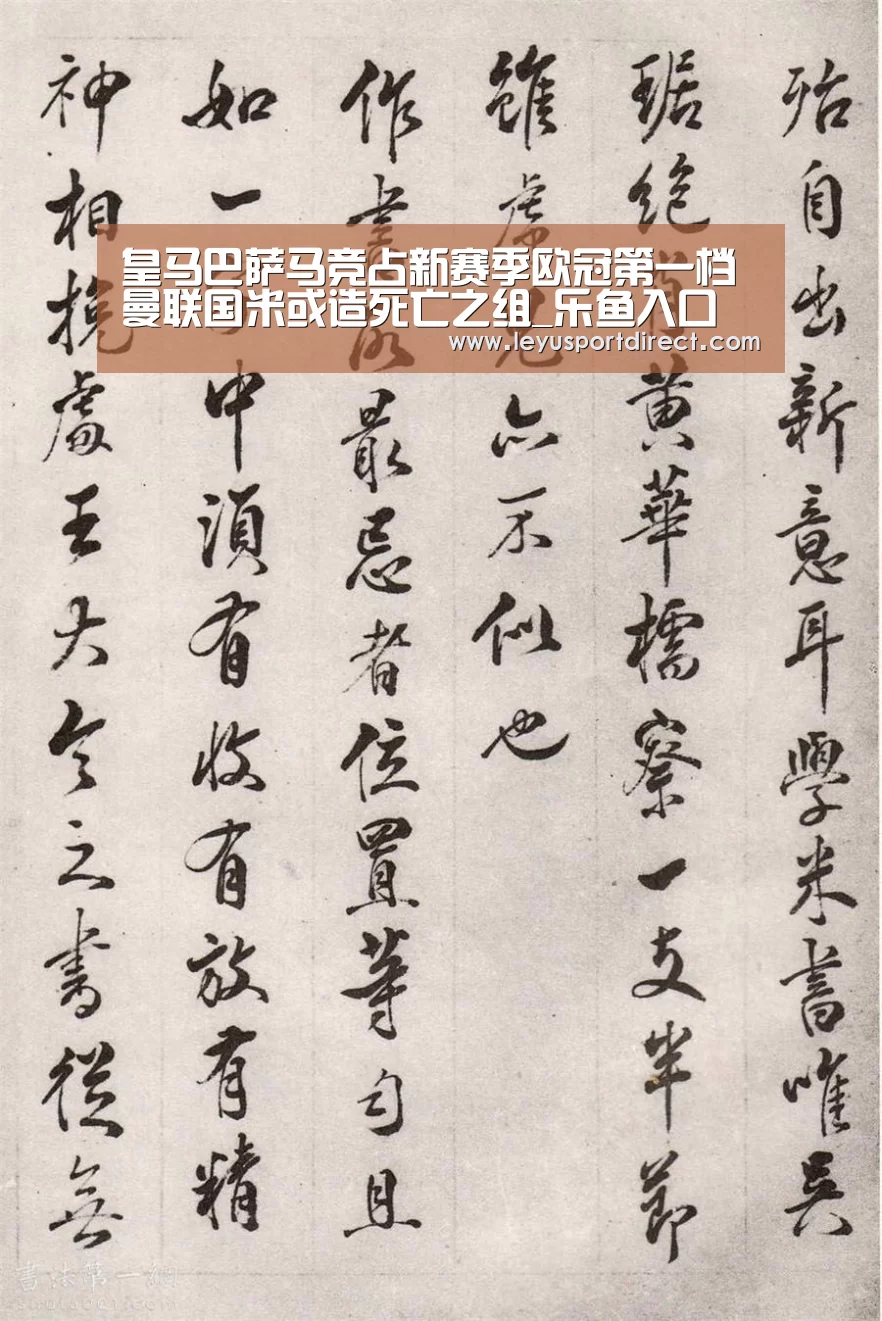 殆自出新意耳學米書唯吳
琚絶黄華樗寮一支半節
雖虎兒亦不似也
作書所最忌者位置等匀且
如一中須有收有放有精
神相挽處王大令之書從無
皇马巴萨马竞占新赛季欧冠第一档
曼联国米或造死亡之组_乐鱼入口
www.leyusportdirect.com